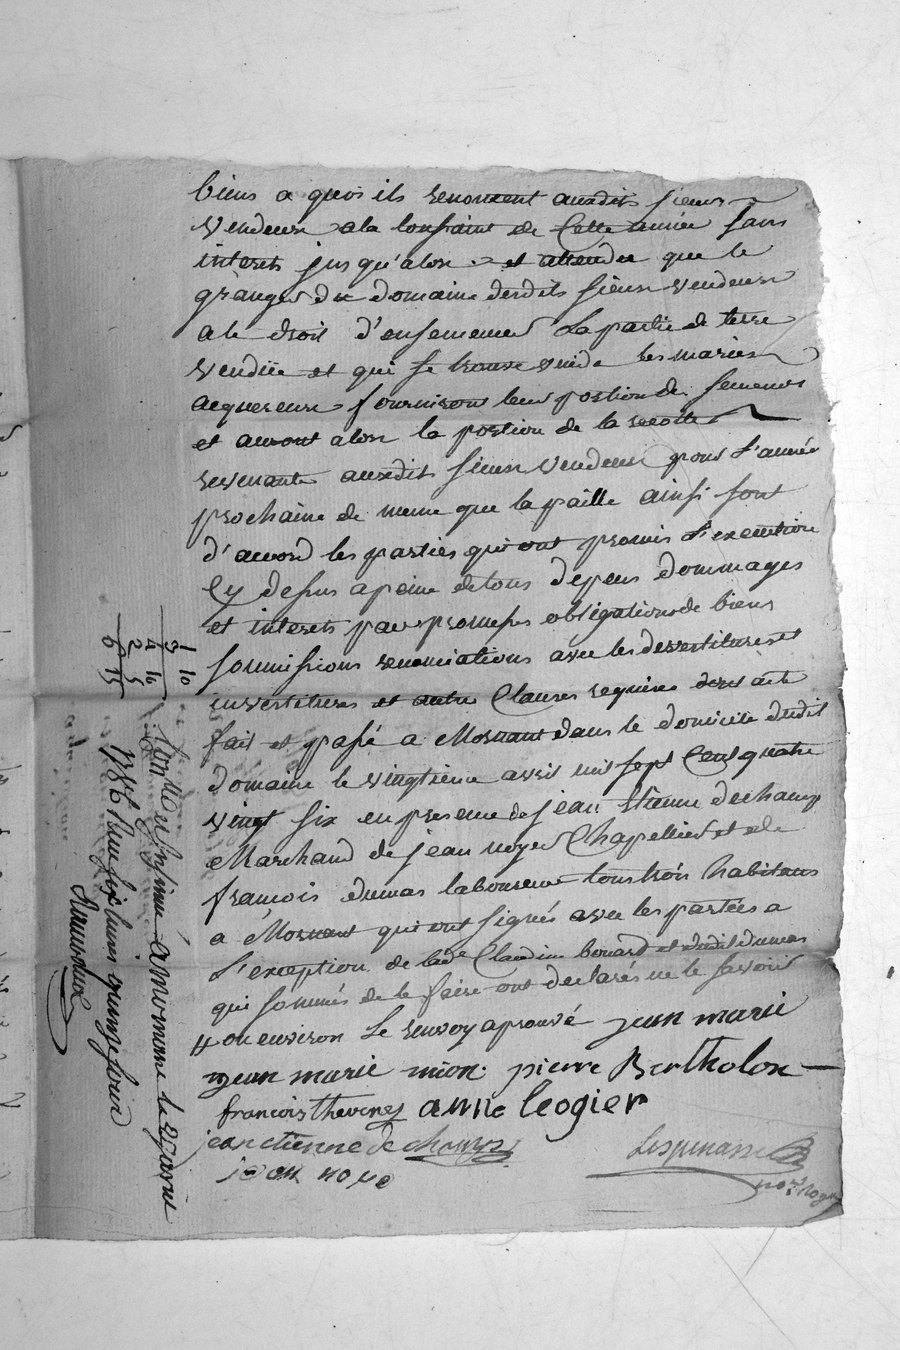 biens a quoi ils renoncent auxdits sieurs
vendeurs a la toussaint de cette année sans
interets jusqu'alors et attendu que le
granger du domaine desdits sieurs vendeurs
a le droit d'ensemencer la partie de terre
vendüe et qui se trouve vuide les mariés
acquereurs fourniront leur portion de semences
et auront alors la portion de la recolte
revenante auxdits sieurs vendeurs pour l'année
prochaine de meme que la paille ainsi sont
d'accord les parties qui ont promis l'execution
cy dessus a peine de tous depens dommages
et interets par promesses obligations de biens
soumissions renonciations avec les devestitures et
investitures et autres clauses requises dont acte
fait et passé a Mornant dans le domicile dudit
domaine le vingtieme avril mil sept cent quatre
vingt six en presence de jean Etienne dechamp
Marchand de jean noyer Chapellier et de
francois dumas laboureur tous trois habitans
a Mornant qui ont signés avec les parties a
l'exception de lade Claudine bouard et dudit dumas
qui sommés de le faire ont declarés ne le savoir
ou environ le renvoy aprouvé jean marie
jean marie mion pierre Bertholon
francois thevenet anne leogier
jean etienne dechamp
jean noye
Lespinasse
nore Roy
1 10
3
4 10
2 5
6 15
Controllé insinué a Mornant le 29 avril
1786 Reçu six livres quinze sous